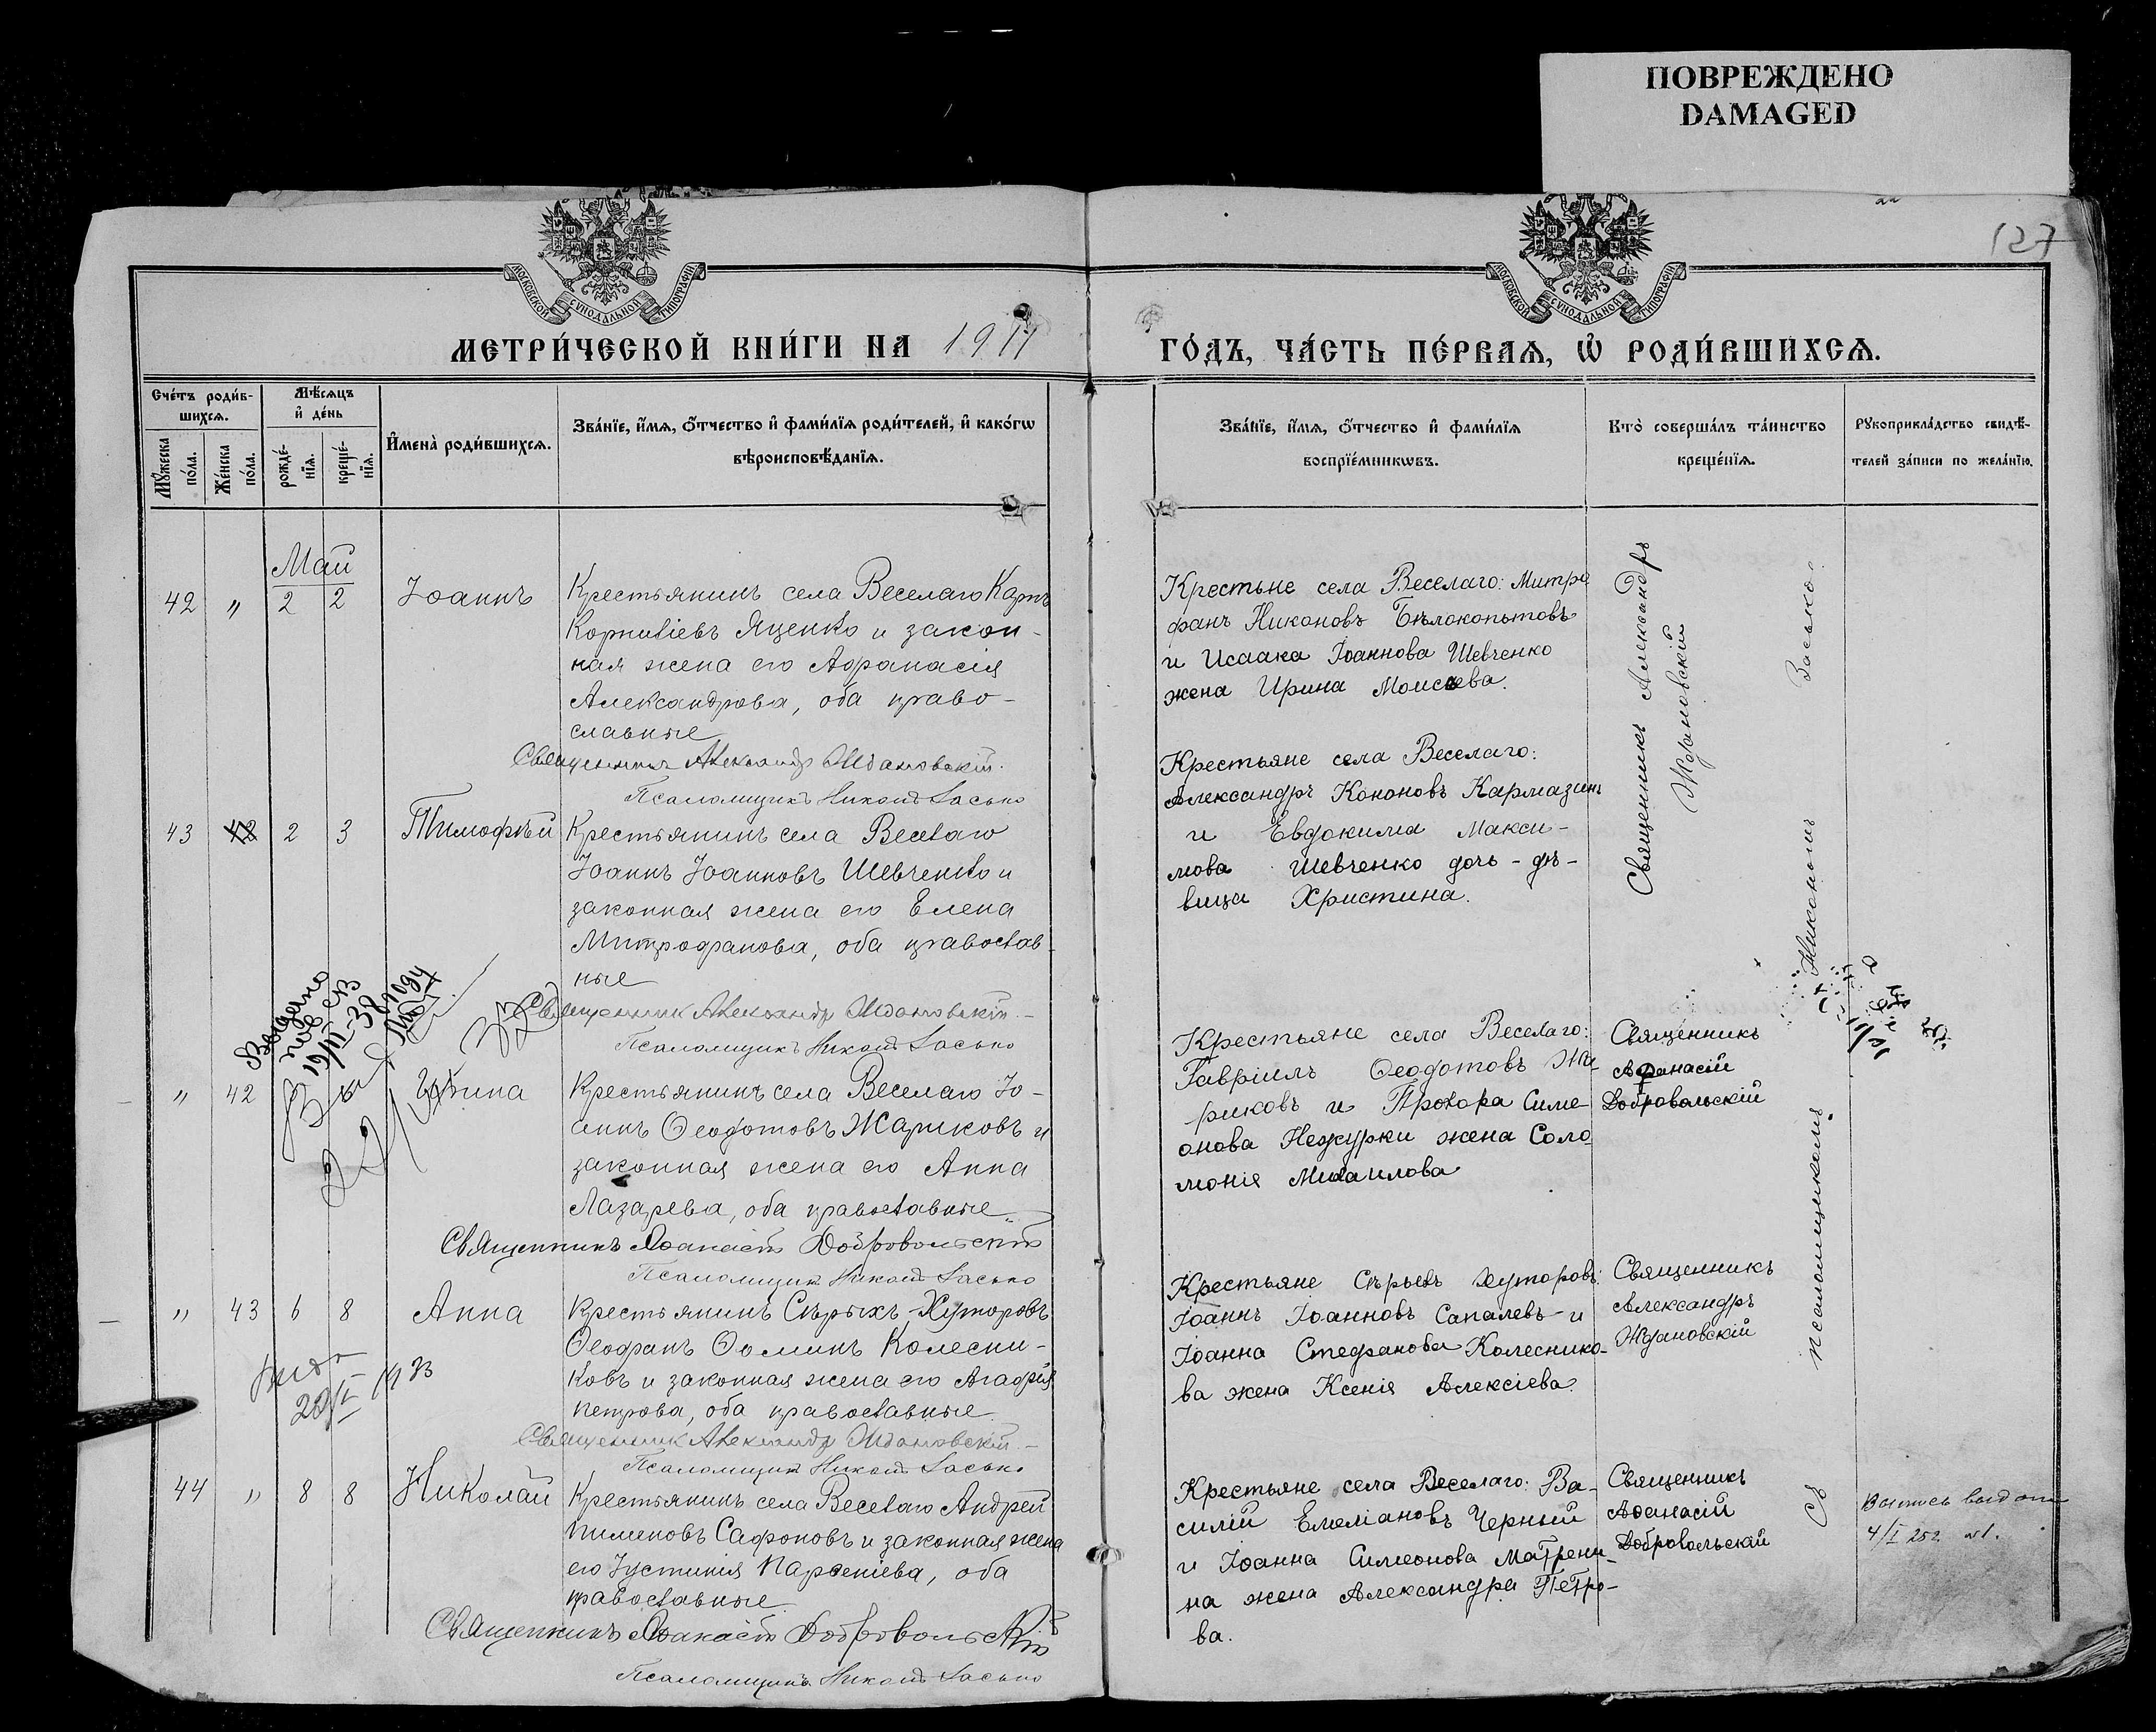 ПОВРЕЖДЕНО
DAMAGED
127
МОСКОВСКОЙ СѴНОДАЛЬНОЙ ТИПОГРАФІИ
МОСКОВСКОЙ СѴНОДАЛЬНОЙ ТИПОГРАФІИ
МЕТРИ́ЧЕСКОЙ КНИ́ГИ НА 1911
ГО́ДЪ, ЧА́СТЬ ПЕ́РВАѦ, Ѡ҆ РОДИ́ВШИХСѦ.
Сче́тъ роди́в-
шихсѧ.
Мѣ́сѧцъ
и҆ де́нь
Мꙋ́жеска
по́ла.
Же́нска
по́ла.
рожде́-
нїѧ.
креще́-
нїѧ.
И҆мена̀ роди́вшихсѧ.
Зва́нїе, и҆́мѧ, ѻ҆́тчество и҆ фами́лїѧ роди́телей, и҆ како́гѡ
вѣроисповѣ́данїѧ.
Зва́нїе, и҆́мѧ, ѻ҆́тчество и҆ фами́лїѧ
воспрїе́мникѡвъ.
Кто̀ соверша́лъ та́инство
креще́нїѧ.
Рꙋкоприкла́дство свидѣ́-
телей за́писи по жела́нїю.
Май
42 " 2 2 Іоаннъ
Крестьянинъ села Веселаго Карпъ
Корниліевъ Яценко и закон-
ная жена его Афанасія
Александрова, оба право-
славные
Священникъ Александр Ждановскій.
Псаломщикъ Никонъ Засько
Крестьне села Веселаго: Митро
фанъ Никоновъ Бѣлокопытовъ
и Исаака Іоаннова Шевченко
жена Ирина Моисеева.
Священникъ Александръ
Ждановскій
43 42 2 3 Тимофѣй
Крестьянинъ села Веселаго
Іоаннъ Іоанновъ Шевченко и
законная жена его Елена
Митрофанова, оба православ-
ные
Священник Александр Ждановскій.
Псаломщикъ Никонъ Засько
Крестьяне села Веселаго:
Александръ Кононовъ Кармазинъ
и Евдокима Макси-
мова Шевченко дочь-дѣ-
вица Христина.
Выдано
19/II-38
" 42
Крестьянинъ села Веселаго Іо-
аннъ Ѳеодотовъ Жариковъ и
законная жена его Анна
Лазарева, оба православные
Священникъ Аѳанасій Добровольскій
Псаломщикъ Никонъ Засько
Крестьяне села Веселаго:
Гавріилъ Ѳеодотовъ Жа-
риковъ и Прохора Симе
онова Нежурки жена Соло-
монія Михаилова
Священникъ
Афанасій
Добровольскій
" 43 6 8 Анна
Крестьянинъ Сѣрыхъ-Хуторовъ
Ѳеофанъ Ѳоминъ Колесни-
ковъ и законная жена его Агафія
Петрова, оба православные
Священник Александр Ждановскій.
Псаломщикъ Никонъ Засько
Крестьяне Сѣрыхъ Хуторовъ:
Іоаннъ Іоанновъ Сапалевъ и
Іоанна Стефанова Колеснико-
ва жена Ксенія Алексіева.
Священникъ
Александръ
Ждановскій
44 " 8 8 Николай
Крестьянинъ села Веселаго Андрей
Пименовъ Сафоновъ и законная жена
его Іустинія Парѳеніева, оба
православные
Священникъ Аѳанасій Добровольскій
Псаломщикъ Никонъ Засько
Крестьяне села Веселаго: Ва-
силій Емеліановъ Черный
и Іоанна Симеонова Матрени-
на жена Александра Петро-
ва.
Священникъ
Аѳанасій
Добровольскій
съ псаломщикомъ Никономъ Засько.